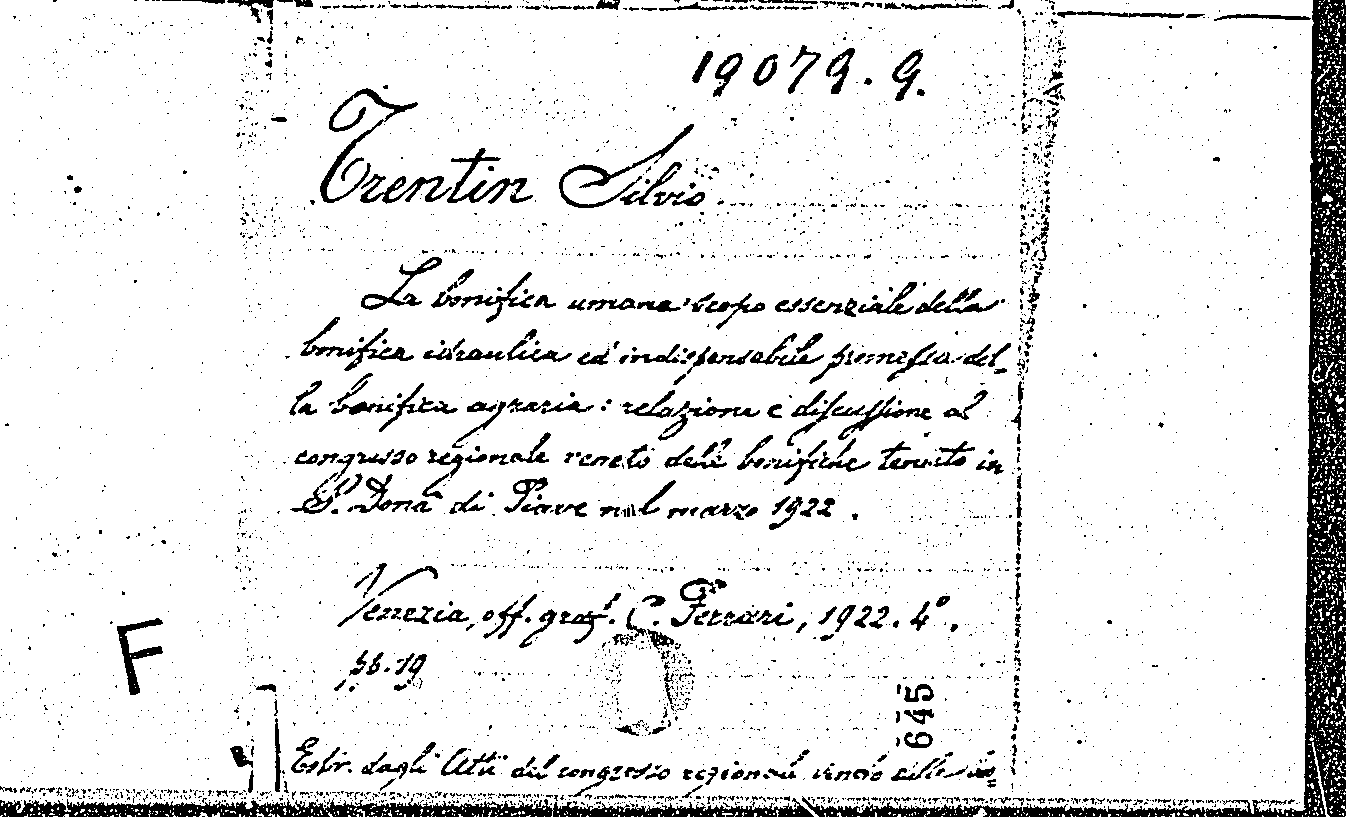 19079.9.
Trentin Silvio
La bonifica umana scopo essenziale della
bonifica idraulica ed indispensabile premessa del-
la bonifica agraria: relazione e discussione al
congresso regionale veneto delle bonifiche tenuto in
S. Donà di Piave nel marzo 1922.
Venezia, off. graf. C. Ferrari, 1922. 4°.
pp. 19
F
645
Estr. dagli Atti del congresso regionale veneto delle